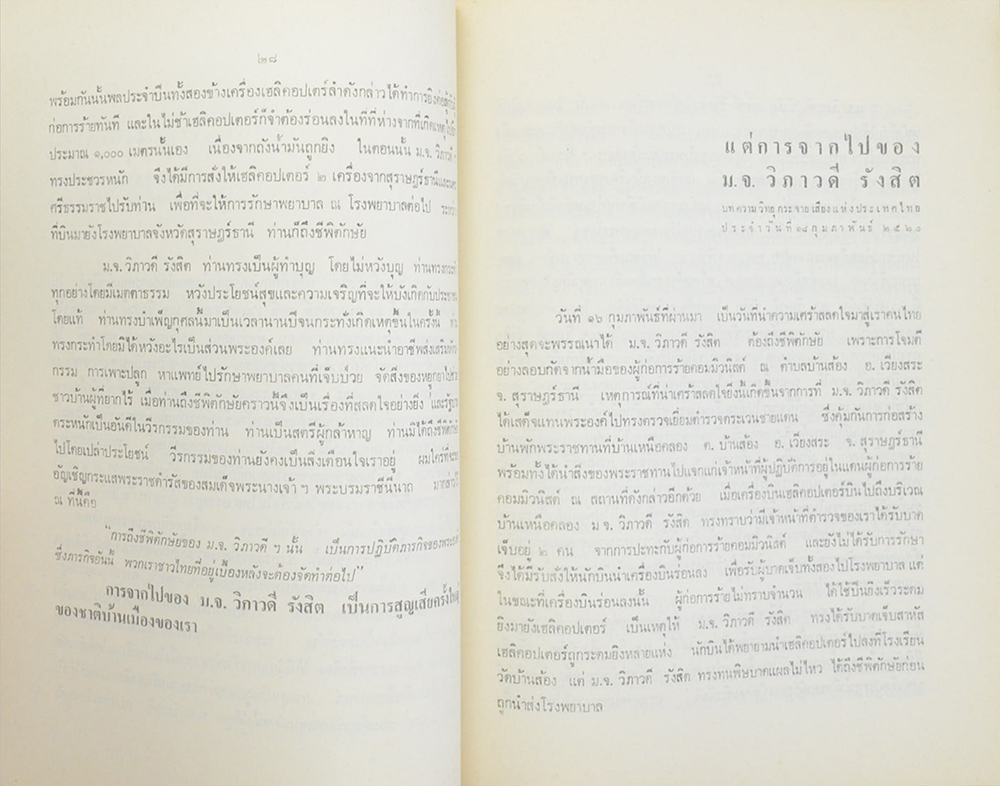 ๒๘
พร้อมกันนั้นพลประจำปืนทั้งสองข้างเครื่องเฮลิคอปเตอร์ลำดังกล่าวได้ทำการยิง
ก่อการร้ายทันที และในไม่ช้าเฮลิคอปเตอร์ก็จำต้องร่อนลงในที่ที่ห่างจากที่เกิดเหตุ
ประมาณ ๑,๐๐๐ เมตรนั้นเอง เนื่องจากถังน้ำมันถูกยิง ในตอนนั้น ม.จ. วิภาวดี ฯ
ทรงประชวรหนัก จึงได้มีการสั่งให้เฮลิคอปเตอร์ ๒ เครื่องจากสุราษฎร์ธานีและ
ศรีธรรมราชไปรับท่าน เพื่อที่จะให้การรักษาพยาบาล ณ โรงพยาบาลต่อไป
ที่บินมายังโรงพยาบาลจังหวัดสุราษฎร์ธานี ท่านก็ถึงชีพิตักษัย
ม.จ. วิภาวดี รังสิต ท่านทรงเป็นผู้ทำบุญ โดยไม่หวังบุญ
ทุกอย่างโดยมีเมตตาธรรม หวังประโยชน์สุขและความเจริญที่จะให้บังเกิดกับ
โดยแท้ ท่านทรงบำเพ็ญกุศลนี้มาเป็นเวลานานปีจนกระทั่งเกิดเหตุขึ้นในครั้งนี้
ทรงกระทำโดยมิได้หวังอะไรเป็นส่วนพระองค์เลย ท่านทรงแนะนำอาชีพส่งเสริม
กรรม การเพาะปลูก หาแพทย์ไปรักษาพยาบาลคนที่เจ็บป่วย จัดสิ่งของหยูกยาไป
ชาวบ้านผู้ที่ยากไร้ เมื่อท่านถึงชีพิตักษัยคราวนี้จึงเป็นเรื่องที่สลดใจอย่างยิ่ง
ตระหนักเป็นอันดีในวีรกรรมของท่าน ท่านเป็นสตรีผู้กล้าหาญ ท่านมิได้ถึงชีพิตักษัย
ไปโดยเปล่าประโยชน์ วีรกรรมของท่านยังคงเป็นสิ่งเตือนใจเราอยู่
อัญเชิญกระแสพระราชดำรัสของสมเด็จพระนางเจ้า ฯ พระบรมราชินีนาถ
ณ ที่นี้คือ
"การถึงชีพิตักษัยของ ม.จ. วิภาวดี ฯ นั้น เป็นการปฏิบัติภารกิจของ
ซึ่งภารกิจอันนั้น พวกเราชาวไทยที่อยู่เบื้องหลังจะต้องจัดทำต่อไป"
การจากไปของ ม.จ. วิภาวดี รังสิต เป็นการสูญเสียครั้ง
ของชาติบ้านเมืองของเรา
แต่การจากไปของ
ม.จ. วิภาวดี รังสิต
บทความวิทยุกระจายเสียงแห่งประเทศไทย
ประจำวันที่ ๑๘ กุมภาพันธ์ ๒๕๒๐
วันที่ ๑๖ กุมภาพันธ์ที่ผ่านมา เป็นวันที่นำความเศร้าสลดใจมาสู่เราคนไทย
อย่างสุดจะพรรณนาได้ ม.จ. วิภาวดี รังสิต ต้องถึงชีพิตักษัย เพราะการโจมตี
อย่างลอบกัดจากน้ำมือของผู้ก่อการร้ายคอมมิวนิสต์ ณ ตำบลบ้านส้อง อ. เวียงสระ
จ. สุราษฎร์ธานี เหตุการณ์ที่น่าเศร้าสลดใจยิ่งนี้เกิดขึ้นจากการที่ ม.จ. วิภาวดี รังสิต
ได้เสด็จแทนพระองค์ไปทรงตรวจเยี่ยมตำรวจตระเวนชายแดน ซึ่งคุ้มกันการก่อสร้าง
บ้านพักพระราชทานที่บ้านเหนือคลอง ต. บ้านส้อง อ. เวียงสระ จ. สุราษฎร์ธานี
พร้อมทั้งได้นำสิ่งของพระราชทานไปแจกแก่เจ้าหน้าที่ผู้ปฏิบัติการอยู่ในแดนผู้ก่อการร้าย
คอมมิวนิสต์ ณ สถานที่ดังกล่าวอีกด้วย เมื่อเครื่องบินเฮลิคอปเตอร์บินไปถึงบริเวณ
บ้านเหนือคลอง ม.จ. วิภาวดี รังสิต ทรงทราบว่ามีเจ้าหน้าที่ตำรวจของเราได้รับบาด
เจ็บอยู่ ๒ คน จากการปะทะกับผู้ก่อการร้ายคอมมิวนิสต์ และยังไม่ได้รับการรักษา
จึงได้มีรับสั่งให้นักบินนำเครื่องบินร่อนลง เพื่อรับผู้บาดเจ็บทั้งสองไปโรงพยาบาล แต่
ในขณะที่เครื่องบินร่อนลงนั้น ผู้ก่อการร้ายไม่ทราบจำนวน ได้ใช้ปืนยิงเร็วระดม
ยิงมายังเฮลิคอปเตอร์ เป็นเหตุให้ ม.จ. วิภาวดี รังสิต ทรงได้รับบาดเจ็บสาหัส
เฮลิคอปเตอร์ถูกระดมยิงหลายแห่ง นักบินได้พยายามนำเฮลิคอปเตอร์ไปลงที่โรงเรียน
วัดบ้านส้อง แต่ ม.จ. วิภาวดี รังสิต ทรงทนพิษบาดแผลไม่ไหว ได้ถึงชีพิตักษัยก่อน
ถูกนำส่งโรงพยาบาล